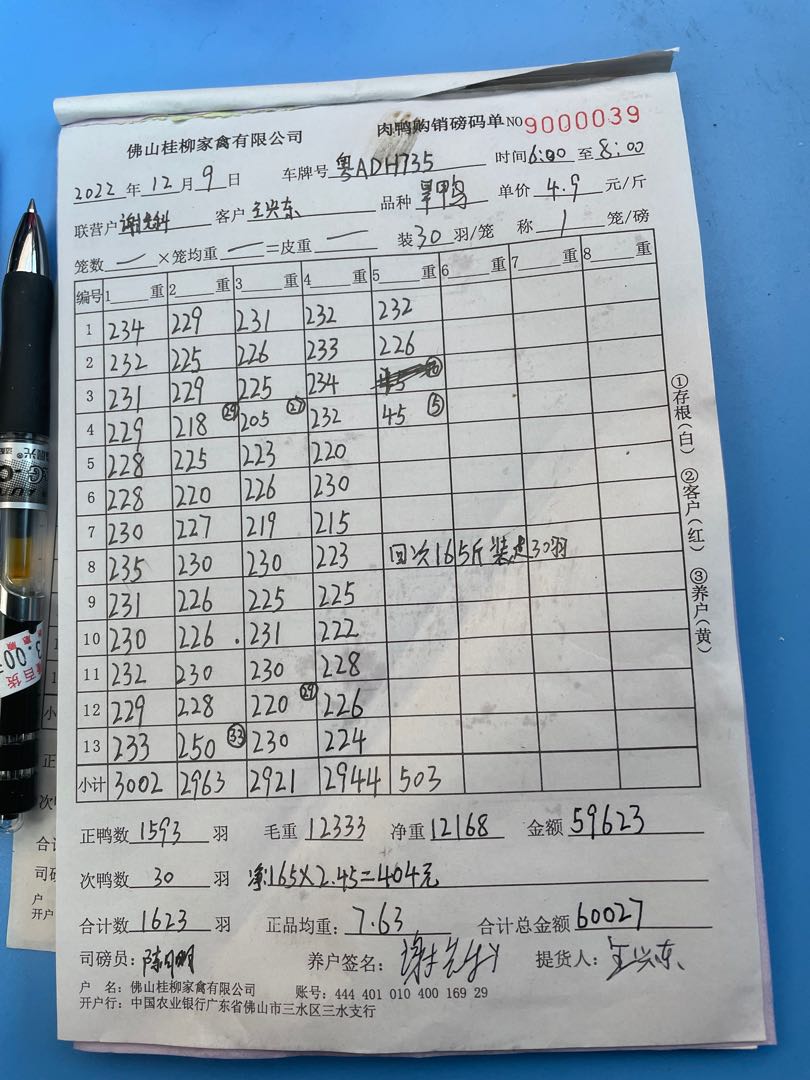 佛山桂柳家禽有限公司 肉鸭购销磅码单 NO 9000039
2022年12月9日 车牌号 粤ADH735 时间 6:00 至 8:00
联营户 客户 王兴东 品种 单价 4.9 元/斤
笼数 一 ×笼均重 一 =皮重 一 装 30 羽/笼 称 1 笼/磅
编号 1 重 2 重 3 重 4 重 5 重 6 重 7 重 8 重
1 234 229 231 232 232
2 232 225 226 233 226
3 231 229 225 234
4 229 218 ㉙ 205 ㉗ 232 45 ⑤
5 228 225 223 220
6 228 220 226 230
7 230 227 219 215
8 235 230 230 223 回次165斤装走30羽
9 231 226 225 225
10 230 226 . 231 222
11 232 230 230 228
12 229 228 220 ㉙ 226
13 233 250 ㉝ 230 224
小计 3002 2963 2921 2944 503
正鸭数 1593 羽 毛重 12333 净重 12168 金额 59623
次鸭数 30 羽 净165×2.45=404元
合计数 1623 羽 正品均重: 7.63 合计总金额 60027
司磅员: 养户签名: 提货人: 王兴东
户 名: 佛山桂柳家禽有限公司 账号: 444 401 010 400 169 29
开户行: 中国农业银行广东省佛山市三水区三水支行
①存根(白) ②客户(红) ③养户(黄)
3.00
百货
小
正
次
合计
司磅
户
开户